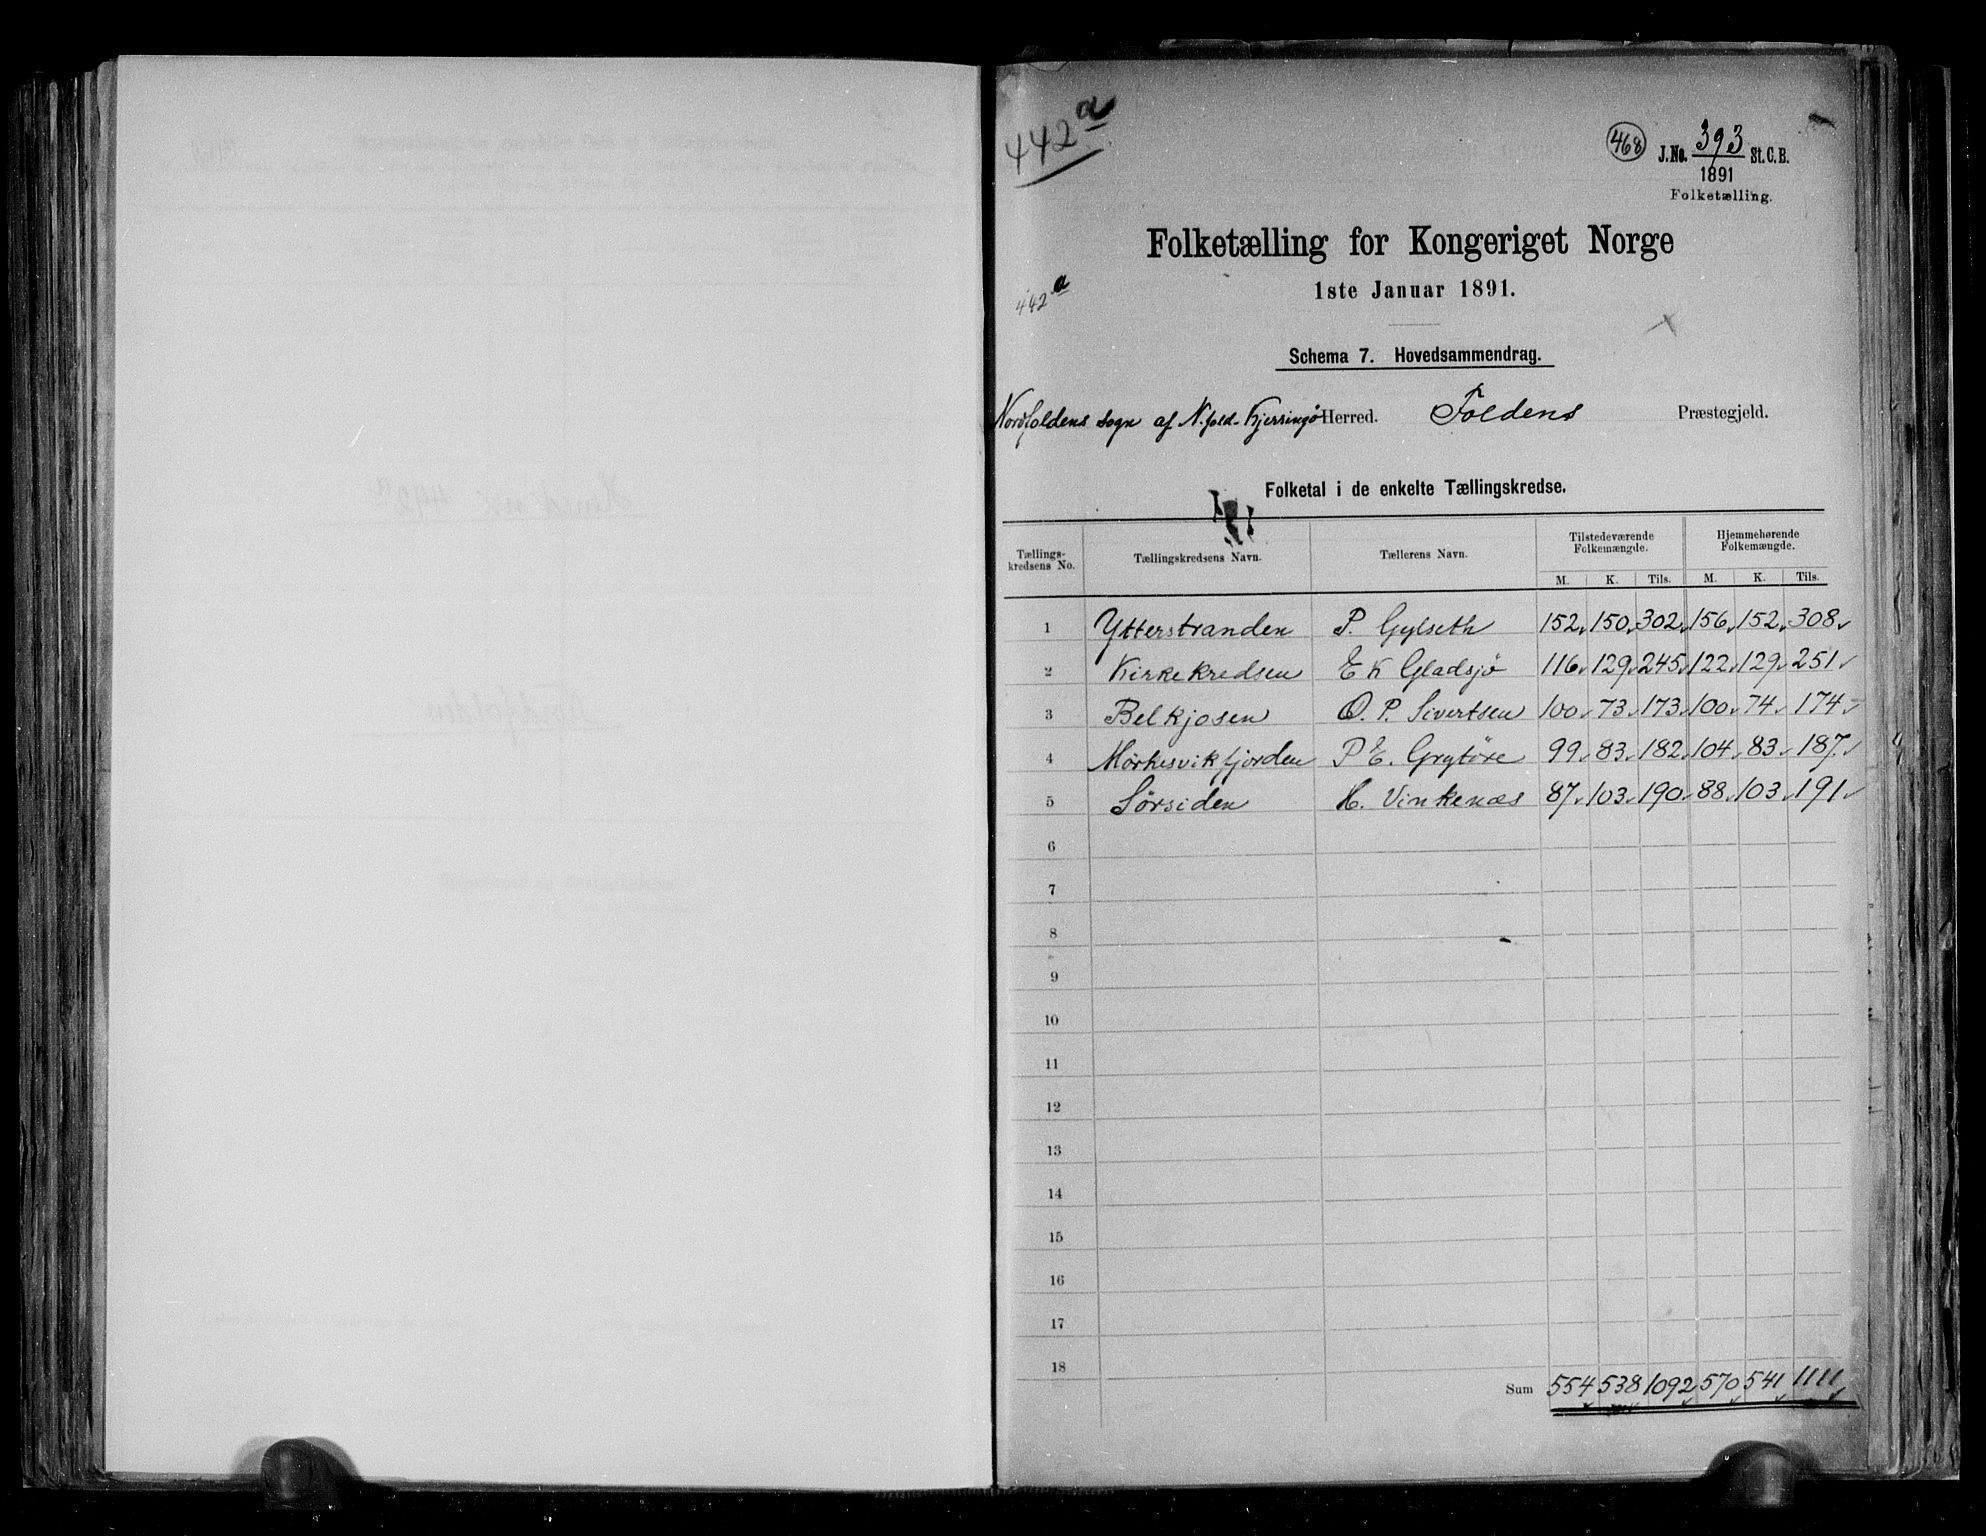 442a
468
J.No. 393 St. C. B.
1891
Folketælling.
Folketælling for Kongeriget Norge
1ste Januar 1891.
442a
Schema 7. Hovedsammendrag.
Nordfoldens sogn af N.fold-Kjerringö Herred. Foldens Præstegjeld.
Folketal i de enkelte Tællingskredse.
Tællings-kredsens No. Tællingskredsens Navn. Tællerens Navn. Tilstedeværende Folkemængde. Hjemmehørende Folkemængde.
M. K. Tils. M. K. Tils.
1 Ytterstranden P. Gylseth 152 150 302 156 152 308
2 Kirkekredsen E K Gladsjö 116 129 245 122 129 251
3 Belkjosen O. P. Sivertsen 100 73 173 100 74 174
4 Mørkesvikfjorden P E. Grytöre 99 83 182 104 83 187
5 Sørsiden H. Vinkenæs 87 103 190 88 103 191
6
7
8
9
10
11
12
13
14
15
16
17
18
Sum 554 538 1092 570 541 1111